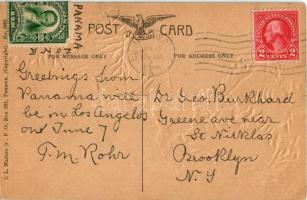 PANAMA
POST CARD
FOR MESSAGE ONLY
FOR ADDRESS ONLY
Greetings from
Panama will
be in Los Angelos
on June 7
T. M. Rohr
Dr Geo. Burkhard
Greene ave near
St Nicklas
Brooklyn
N-Y
2 CENTS 2
I. L. Maduro Jr., P. O. Box
Panama.